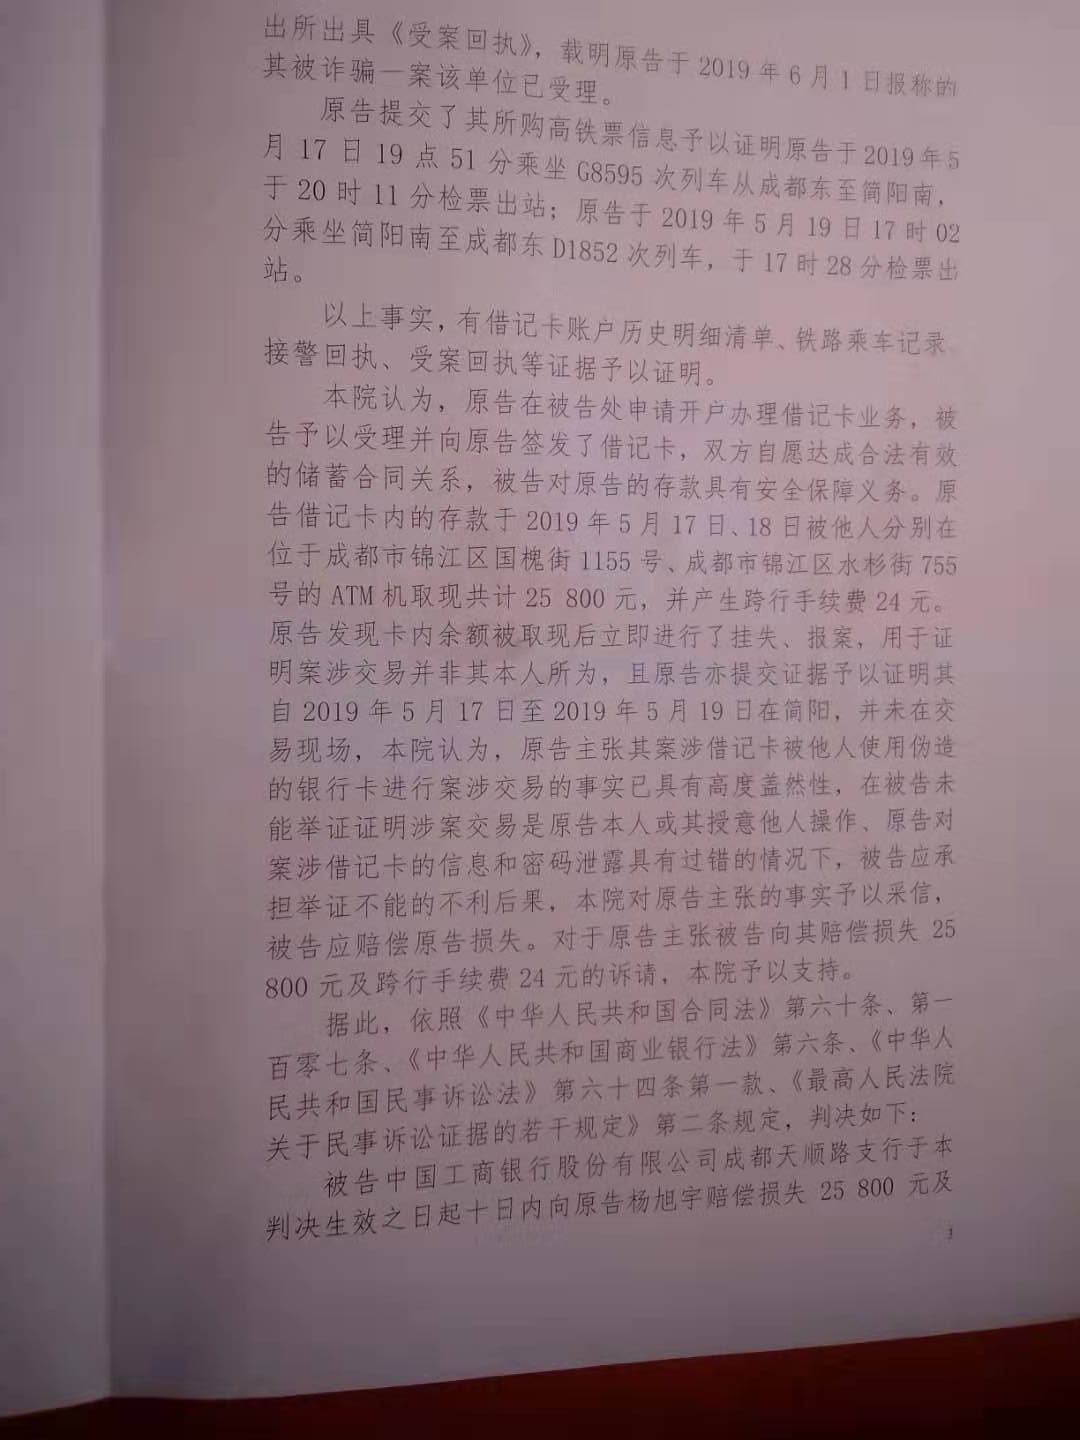 出所出具《受案回执》，载明原告于 2019 年 6 月 1 日报称的
其被诈骗一案该单位已受理。
原告提交了其所购高铁票信息予以证明原告于 2019 年 5
月 17 日 19 点 51 分乘坐 G8595 次列车从成都东至简阳南，
于 20 时 11 分检票出站；原告于 2019 年 5 月 19 日 17 时 02
分乘坐简阳南至成都东 D1852 次列车，于 17 时 28 分检票出
站。
以上事实，有借记卡账户历史明细清单、铁路乘车记录、
接警回执、受案回执等证据予以证明。
本院认为，原告在被告处申请开户办理借记卡业务，被
告予以受理并向原告签发了借记卡，双方自愿达成合法有效
的储蓄合同关系，被告对原告的存款具有安全保障义务。原
告借记卡内的存款于 2019 年 5 月 17 日、18 日被他人分别在
位于成都市锦江区国槐街 1155 号、成都市锦江区水杉街 755
号的 ATM 机取现共计 25 800 元，并产生跨行手续费 24 元。
原告发现卡内余额被取现后立即进行了挂失、报案，用于证
明案涉交易并非其本人所为，且原告亦提交证据予以证明其
自 2019 年 5 月 17 日至 2019 年 5 月 19 日在简阳，并未在交
易现场，本院认为，原告主张其案涉借记卡被他人使用伪造
的银行卡进行案涉交易的事实已具有高度盖然性，在被告未
能举证证明涉案交易是原告本人或其授意他人操作、原告对
案涉借记卡的信息和密码泄露具有过错的情况下，被告应承
担举证不能的不利后果，本院对原告主张的事实予以采信，
被告应赔偿原告损失。对于原告主张被告向其赔偿损失 25
800 元及跨行手续费 24 元的诉请，本院予以支持。
据此，依照《中华人民共和国合同法》第六十条、第一
百零七条、《中华人民共和国商业银行法》第六条、《中华人
民共和国民事诉讼法》第六十四条第一款、《最高人民法院
关于民事诉讼证据的若干规定》第二条规定，判决如下：
被告中国工商银行股份有限公司成都天顺路支行于本
判决生效之日起十日内向原告杨旭宇赔偿损失 25 800 元及